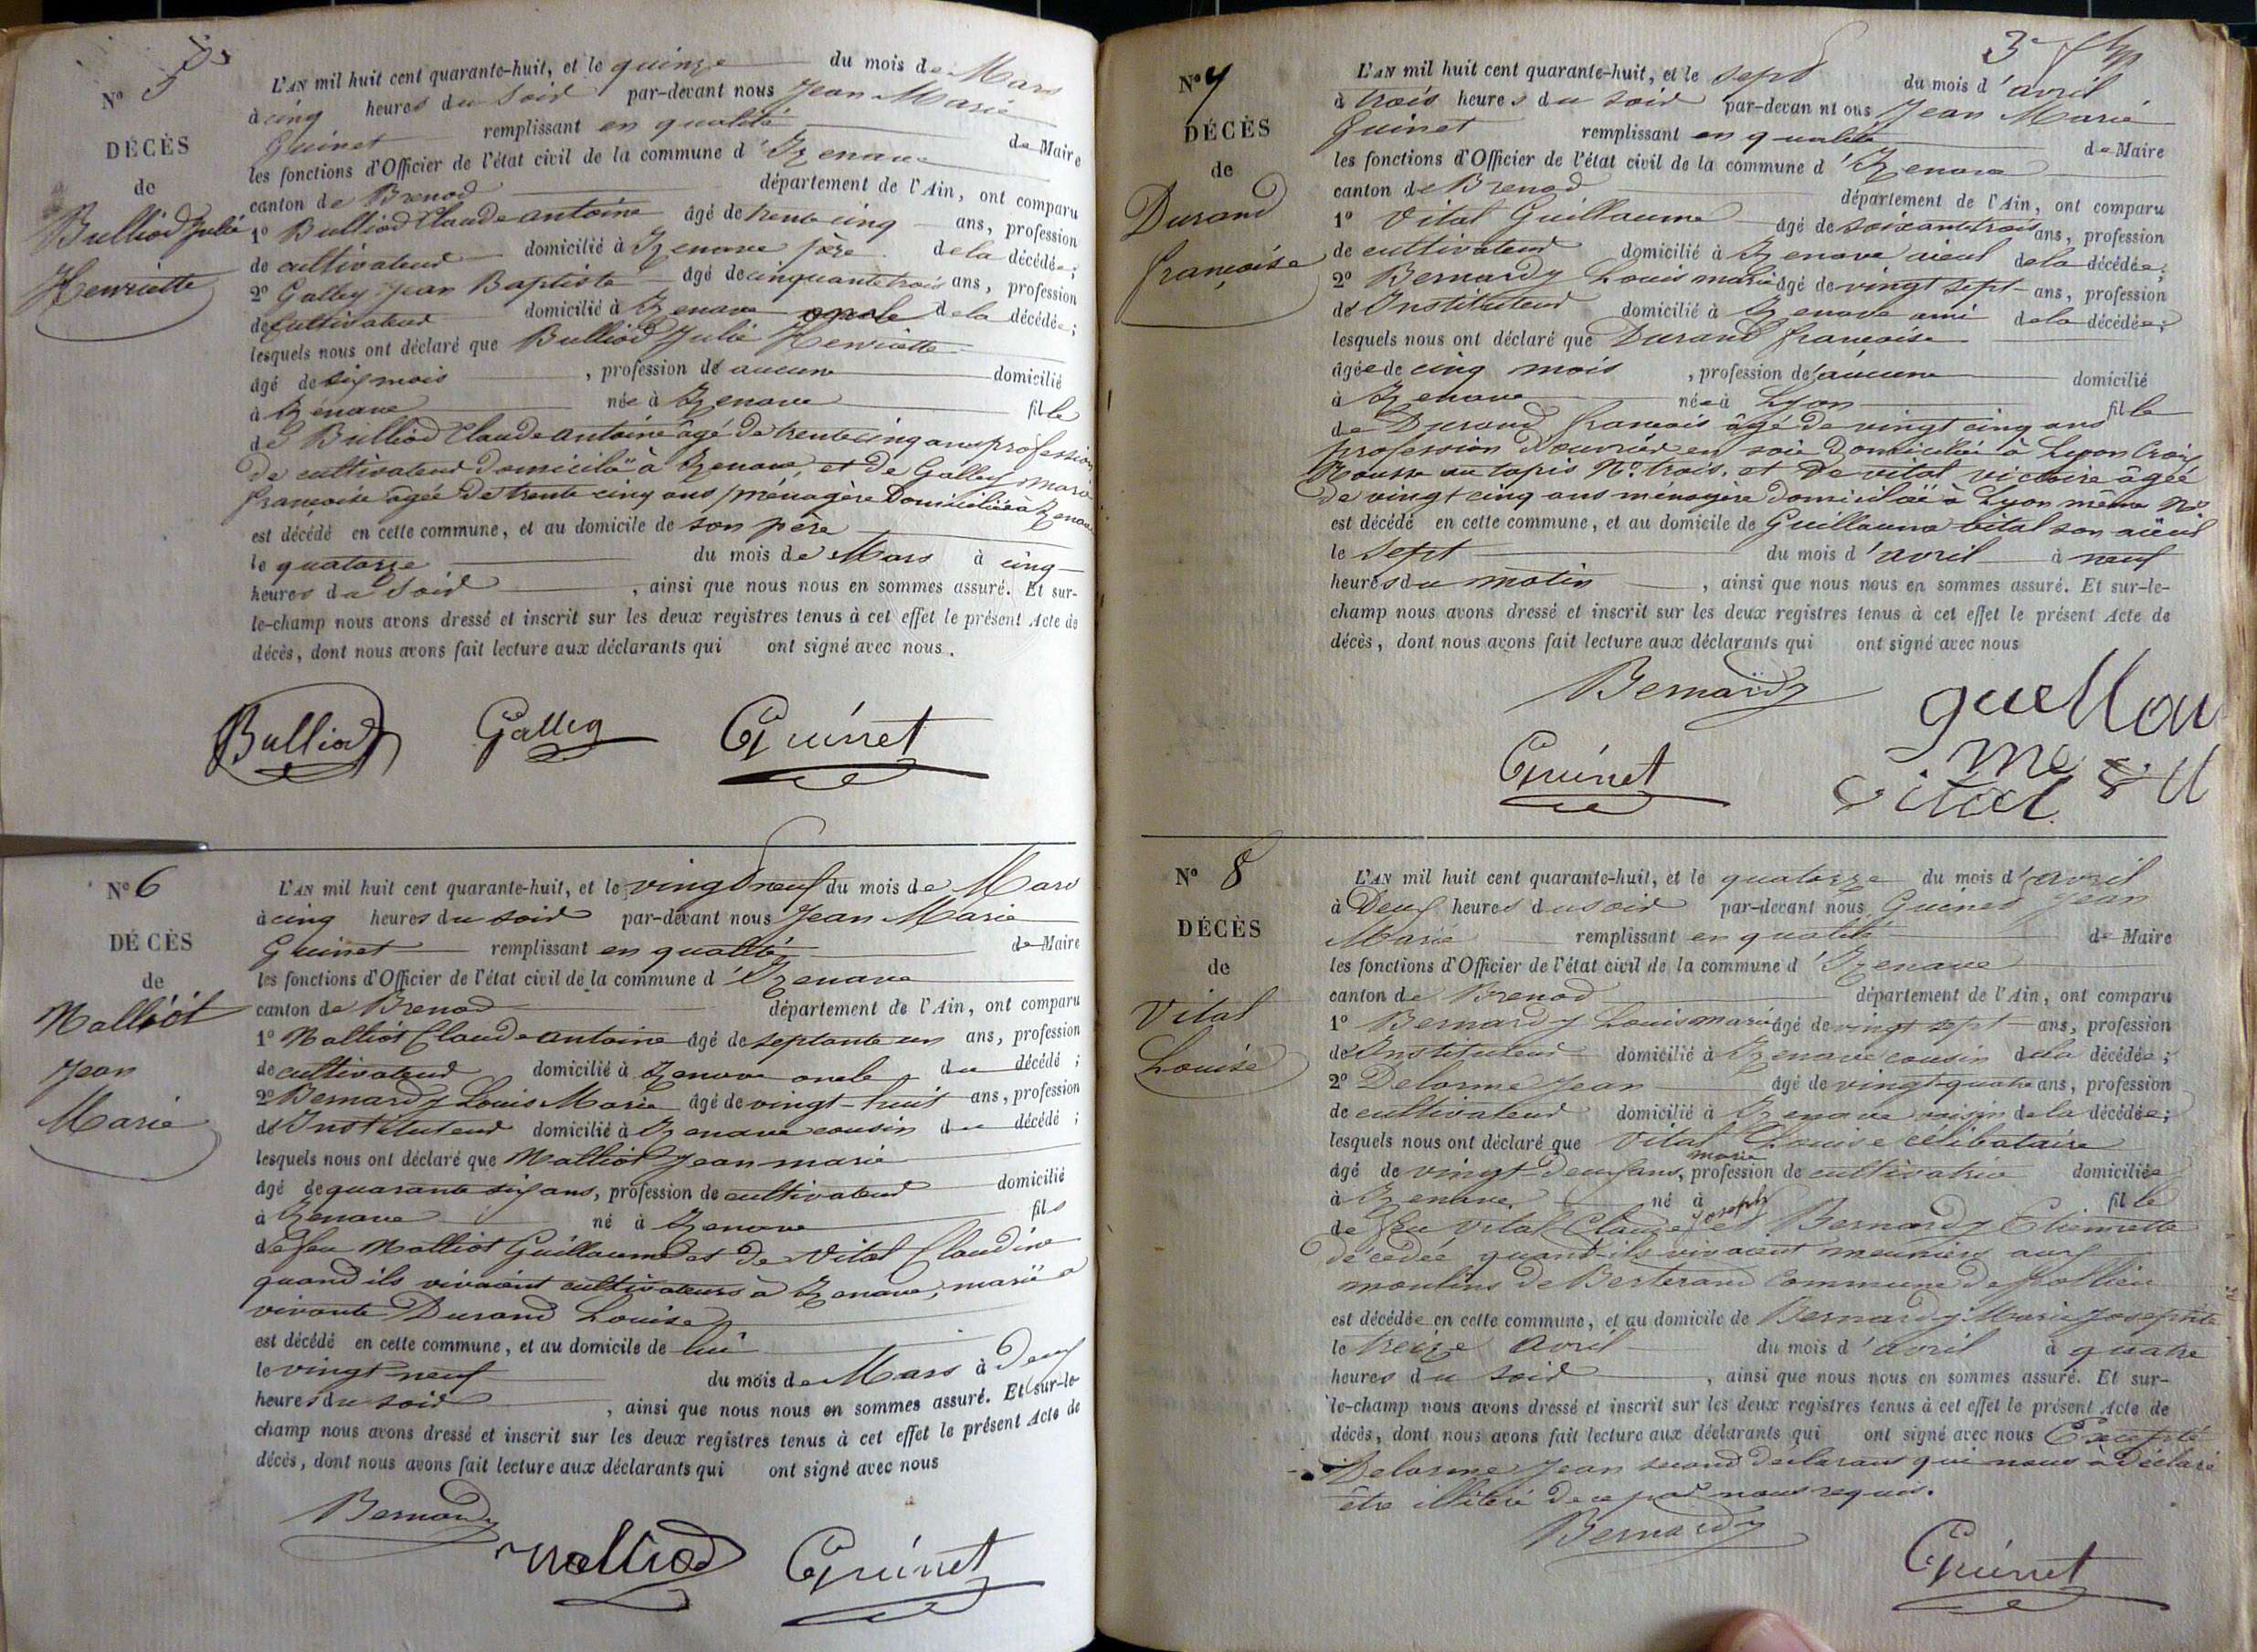 N° 5
DÉCÈS
de
Bulliod Julie
Henriette
L'AN mil huit cent quarante-huit, et le quinze du mois de Mars
à cinq heures du soir par-devant nous Jean Marie
Guinet remplissant en qualité de Maire
les fonctions d'Officier de l'état civil de la commune d'Izenave
canton de Brenod département de l'Ain, ont comparu
1° Bulliod Claude antoine âgé de trente cinq ans, profession
de cultivateur domicilié à Izenave père de la décédée;
2° Galley Jean Baptiste âgé de cinquante trois ans, profession
de cultivateur domicilié à Izenave oncle de la décédée;
lesquels nous ont déclaré que Bulliod Julie Henriette
âgé de six mois , profession de aucune domicilié
à Izenave née à Izenave fille
de Bulliod Claude antoine âgé de trente cinq ans profession
de cultivateur domicilié à Izenave, et de Galley marie
françoise âgée de trente cinq ans ménagère Domiciliée à Izenave
est décédé en cette commune, et au domicile de son père
le quatorze du mois de Mars à cinq
heures du soir , ainsi que nous nous en sommes assuré. Et sur-
le-champ nous avons dressé et inscrit sur les deux registres tenus à cet effet le présent Acte de
décès, dont nous avons fait lecture aux déclarants qui ont signé avec nous.
Bulliod Galley Guinet
N° 6
DÉCÈS
de
Malliot
Jean
Marie
L'AN mil huit cent quarante-huit, et le vingt neuf du mois de Mars
à cinq heures du soir par-devant nous Jean Marie
Guinet remplissant en qualité de Maire
les fonctions d'Officier de l'état civil de la commune d'Izenave
canton de Brenod département de l'Ain, ont comparu
1° Malliot Claude antoine âgé de septante un ans, profession
de cultivateur domicilié à Izenave oncle du décédé;
2° Bernardy Louis Marie âgé de vingt-huit ans, profession
d'Instituteur domicilié à Izenave cousin du décédé;
lesquels nous ont déclaré que Malliot Jean marie
âgé de quarante six ans, profession de cultivateur domicilié
à Izenave né à Izenave fils
de feu Malliot Guillaume et de Vital Claudine
quand ils vivaient cultivateurs à Izenave, marié a
vivante Durand Louise
est décédé en cette commune, et au domicile de lui
le vingt neuf du mois de Mars à deux
heures du soir , ainsi que nous nous en sommes assuré. Et sur-le-
champ nous avons dressé et inscrit sur les deux registres tenus à cet effet le présent Acte de
décès, dont nous avons fait lecture aux déclarants qui ont signé avec nous
Bernardy Malliod Guinet
3e
N° 7
DÉCÈS
de
Durand
françoise
L'AN mil huit cent quarante-huit, et le sept du mois d'avril
à trois heures du soir par-devan nt ous Jean Marie
Guinet remplissant en qualité de Maire
les fonctions d'Officier de l'état civil de la commune d'Izenave
canton de Brenod département de l'Ain, ont comparu
1° Vital Guillaume âgé de soixante trois ans, profession
de cultivateur domicilié à Izenave aieul de la décédée;
2° Bernardy Louis marie âgé de vingt sept ans, profession
d'Instituteur domicilié à Izenave ami de la décédée;
lesquels nous ont déclaré que Durand françoise
âgée de cinq mois , profession de aucune domicilié
à Izenave née à Lyon fille
de Durand francois âgé de vingt cinq ans
profession d'ouvrier en soie Domicilié à Lyon Croix
Rousse au tapis N° trois. et De vital victoire âgée
de vingt cinq ans ménagère domiciliée à Lyon même N°
est décédé en cette commune, et au domicile de Guillaume Vital son aïeul
le sept du mois d'avril à neuf
heures du matin , ainsi que nous nous en sommes assuré. Et sur-le-
champ nous avons dressé et inscrit sur les deux registres tenus à cet effet le présent Acte de
décès, dont nous avons fait lecture aux déclarants qui ont signé avec nous
Bernardy guellau
me
Guinet vital
N° 8
DÉCÈS
de
Vital
Louise
L'AN mil huit cent quarante-huit, et le quatorze du mois d'avril
à Deux heures du soir par-devant nous Guinet Jean
Marie remplissant en qualité de Maire
les fonctions d'Officier de l'état civil de la commune d'Izenave
canton de Brenod département de l'Ain, ont comparu
1° Bernardy Louis marie âgé de vingt sept ans, profession
d'Instituteur domicilié à Izenave cousin de la décédée;
2° Delorme Jean âgé de vingt-quatre ans, profession
de cultivateur domicilié à Izenave voisin de la décédée;
lesquels nous ont déclaré que Vital Louise célibataire
marie
âgé de vingt-deux ans, profession de cultivatrice domiciliée
à Izenave, né à fille
de feu Vital Claude Joseph et Bernardy Etiennette
décédée quand-ils vivaient meuniers aux
moulins de Berterand Commune de
est décédée en cette commune, et au domicile de Bernardy Marie Josephte
le treize avril du mois d'avril à quatre
heures du soir , ainsi que nous nous en sommes assuré. Et sur-
le-champ nous avons dressé et inscrit sur les deux registres tenus à cet effet le présent Acte de
décès, dont nous avons fait lecture aux déclarants qui ont signé avec nous Excepté
Delorme Jean second declarant qui nous à déclaré
être illitéré de ce par nous requis.
Bernardy
Guinet